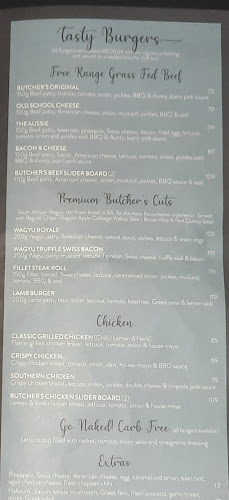 Tasty Burgers
Free Range Grass Fed Beef
BUTCHER'S ORIGINAL 75
150g Beef patty, lettuce, tomato, onion, pickles, BBQ & Aunty Jean's pink sauce
OLD SCHOOL CHEESE 79
150g Beef patty, American cheese, onion, mustard, pickles, BBQ & aioli
THE AUSSIE 99
150g Beef patty, beetroot, pineapple, Swiss cheese, bacon, fried egg, lettuce,
tomato, onion, pickles with BBQ & Aunty Jean's pink sauce
BACON & CHEESE 89
150g Beef patty, bacon, American cheese, lettuce, tomato, onion, pickles with
BBQ & Aunty Jean's pink sauce
BUTCHER'S BEEF SLIDER BOARD (2) 109
110g Beef patty, American cheese, onion, mustard, pickles, BBQ sauce & aioli
Premium Butcher's Cuts
WAGYU ROYALE 109
200g Wagyu patty, American cheese, special sauce, pickles, lettuce & onion rings
WAGYU TRUFFLE SWISS BACON 119
200g Wagyu patty, mustard, Swiss cheese, truffle aioli & bacon
FILLET STEAK ROLL 119
150g Fillet, Swiss cheese, lettuce, caramelised onion, pickles, mustard,
tomato, BBQ & aioli
LAMB BURGER 119
200g Lamb patty, feta, onion, lettuce, tomato, beetroot, Greek sauce & lemon aioli
Chicken
CLASSIC GRILLED CHICKEN (Chilli | Lemon & Herb) 65
Flame-grilled chicken breast, lettuce, tomato, onion & house mayo
CRISPY CHICKEN 69
Crispy chicken breast, lettuce, tomato, onion, slaw, house mayo & BBQ sauce
SOUTHERN CHICKEN 79
Crispy chicken breast, lettuce, onion, pickles, double cheese & chipotle pink sauce
BUTCHER'S CHICKEN SLIDER BOARD (2) 109
Lemon & herb chicken breast, lettuce, tomato, onion & house mayo
Go Naked! Carb Free (all burgers available)
Lettuce cup filled with rocket, tomato, onion salsa and vinaigrette dressing
Extras
Pineapple, Swiss cheese, American cheese, egg, caramelised onion, beetroot,
aged cheddar cheese, fresh chopped chilli 13
Halloumi, bacon, whole mushroom, Greek feta, fresh avocado, garlic bread,